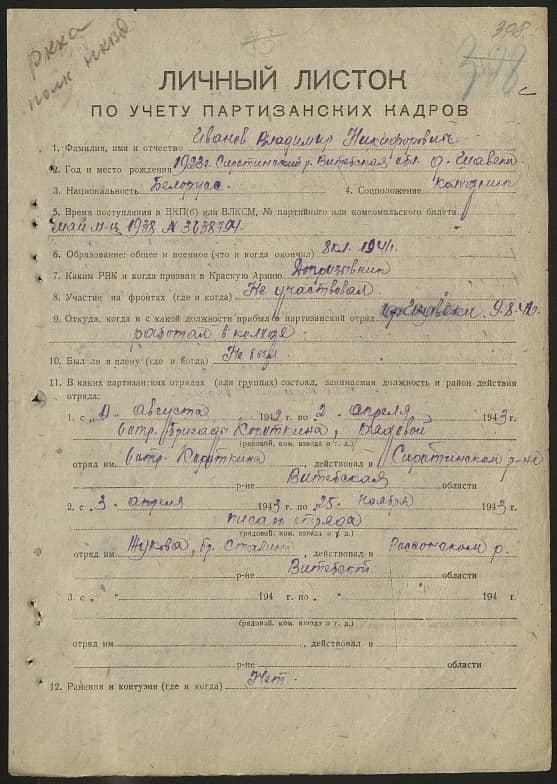 398
ркка
полк нквд
398 с
ЛИЧНЫЙ ЛИСТОК
ПО УЧЕТУ ПАРТИЗАНСКИХ КАДРОВ
1. Фамилия, имя и отчество Иванов Владимир Никифорович
2. Год и место рождения 1923г. Сиротинский р. Витебская обл. д. Главати
3. Национальность Белорусс. 4. Соцположение колхозник
5. Время поступления в ВКП(б) или ВЛКСМ, № партийного или комсомольского билета
май м-ц 1938 N
6. Образование: общее и военное (что и когда окончил) 8кл. 1941г.
7. Каким РВК и когда призван в Красную Армию Допризывник
8. Участие на фронтах (где и когда) Не участвовал
9. Откуда, когда и с какой должности прибыл в партизанский отряд 9.8.42г.
работал в колхозе
10. Был ли в плену (где и когда) Не был
11. В каких партизанских отрядах (или группах) состоял, занимаемая должность и район действия
отряда:
1. с „9„ августа 1942 г. по „2„ апреля 1943 г.
6 отр. бригады Короткина, Рядовой
(рядовой, ком. взвода и т. д.)
отряд им. 6 отр. Короткина, действовал в Сиротинском р-не
р-не Витебская области
2. с „3„ апреля 1943 г. по „25„ ноября 1943 г.
писарь отряда
(рядовой, ком. взвода и т. д.)
отряд им Жукова, бр. Сталина, действовал в Россонском р.
р-не Витебской области
3. с „ „ 194 г. по „ „ 194 г.
(рядовой, ком. взвода и т. д.)
отряд им. , действовал в
р-не области
12. Ранения и контузии (где и когда) Нет.